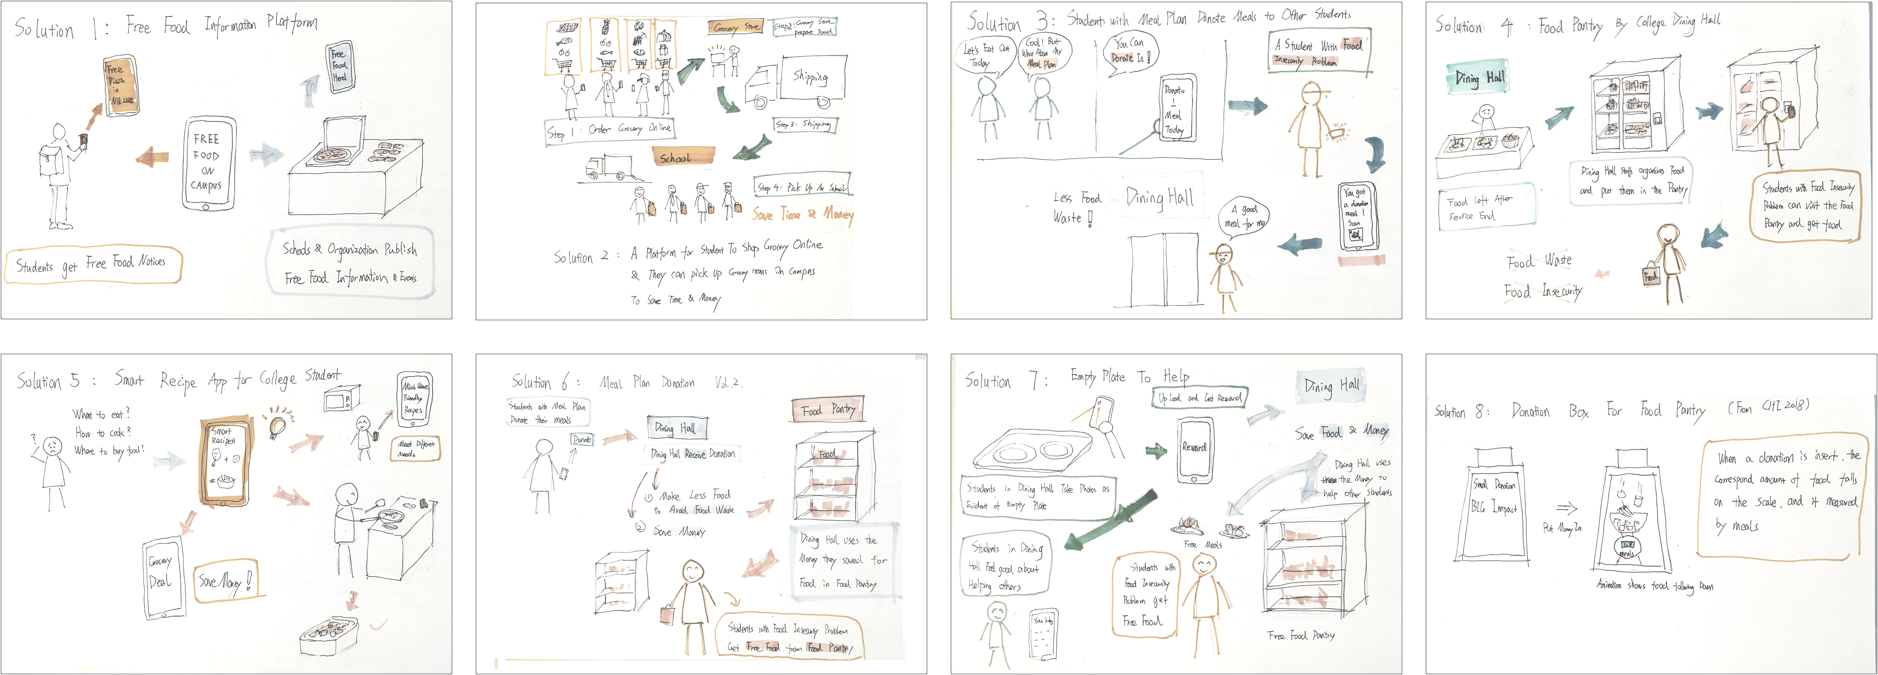 Solution 1 : Free Food Information Platform
Free
Pizza
in
Free
Food
FREE
FOOD
ON
CAMPUS
Students get Free Food Notices
Schools & Organization Publish
Free Food Information & Events
Grocery Store
Step2: Grocery Store
prepare Food
Shipping
Step 1 : Order Grocery Online
Step 3: Shipping
School
Step 4: Pick Up At School
Save Time & Money
Solution 2 : A Platform for Student To Shop Grocery Online
& They can pick up Grocery items On Campus
To Save Time & Money
Solution 3: Students with Meal Plan Donate Meals to Other Students
Let's Eat Out
Today
Cool! But
What About My
Meal Plan
You Can
Donate It !
Donate
1
Meal
Today
A Student With Food
Insecurity Problem
You got
a donation
meal !
Scan
Less Food
Waste !
Dining Hall
A good
meal for me
Solution 4 : Food Pantry By College Dining Hall
Dining Hall
Food left After
Service End
Dining Hall staffs organizes Food
and put them in the Pantry
Students with Food Insecurity
Problem can visit the Food
Pantry and get food
Food Waste
Food Insecurity
Food
Solution 5 : Smart Recipe App for College Student
What to eat?
How to cook?
Where to buy food?
Smart
Recipes
Micro Wave
Friendly
Recipes
Meet Different
needs
Grocery
Deal
Save Money !
Solution 6 : Meal Plan Donation Vol.2.
Students with Meal Plan
Donate their meals
Donate
Dining Hall
Dining Hall Receive Donation
① Make Less Food
to Avoid Food Waste
② Save Money
Food Pantry
Food
Dining Hall uses the
Money they saved for
Food in Food Pantry
Students with Food Insecurity Problem
Get Free Food from Food Pantry
Solution 7 : Empty Plate To Help
Upload and Get Reward
Reward
Dining Hall
Save Food & Money
Dining Hall uses
the Money to
help other Students
Students in Dining Hall Take Photos as
Evident of Empty Plate
Students in Dining
Hall Feel good about
Helping others
You help
Free Meals
Students with
Food Insecurity
Problem get
Free Food
Free Food Pantry
Solution 8 : Donation Box For Food Pantry (From CHI 2018)
Small Donation
BIG Impact
Put Money In
meals
Animation shows food falling Down
When a donation is insert, the
correspond amount of food falls
on the scale, and it measured
by meals